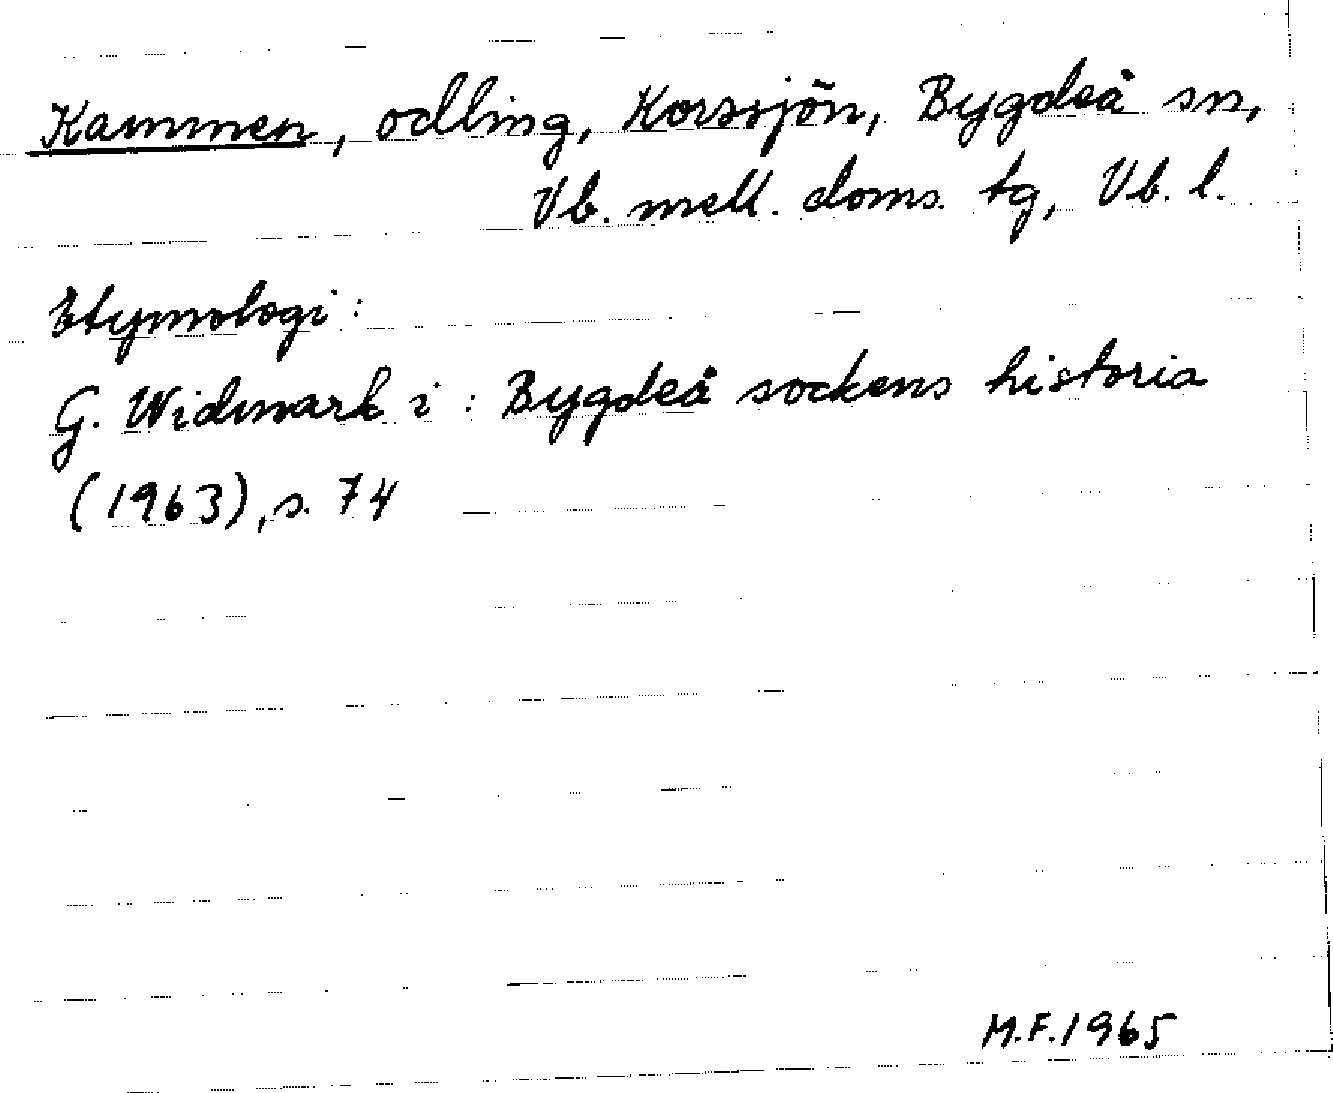 Kammen, odling, Korssjön, Bygdeå sn,
Vb. mell. doms. tg, Vb. l.
Etymologi:
G. Widmark i: Bygdeå sockens historia
(1963), s. 74
M.F. 1965